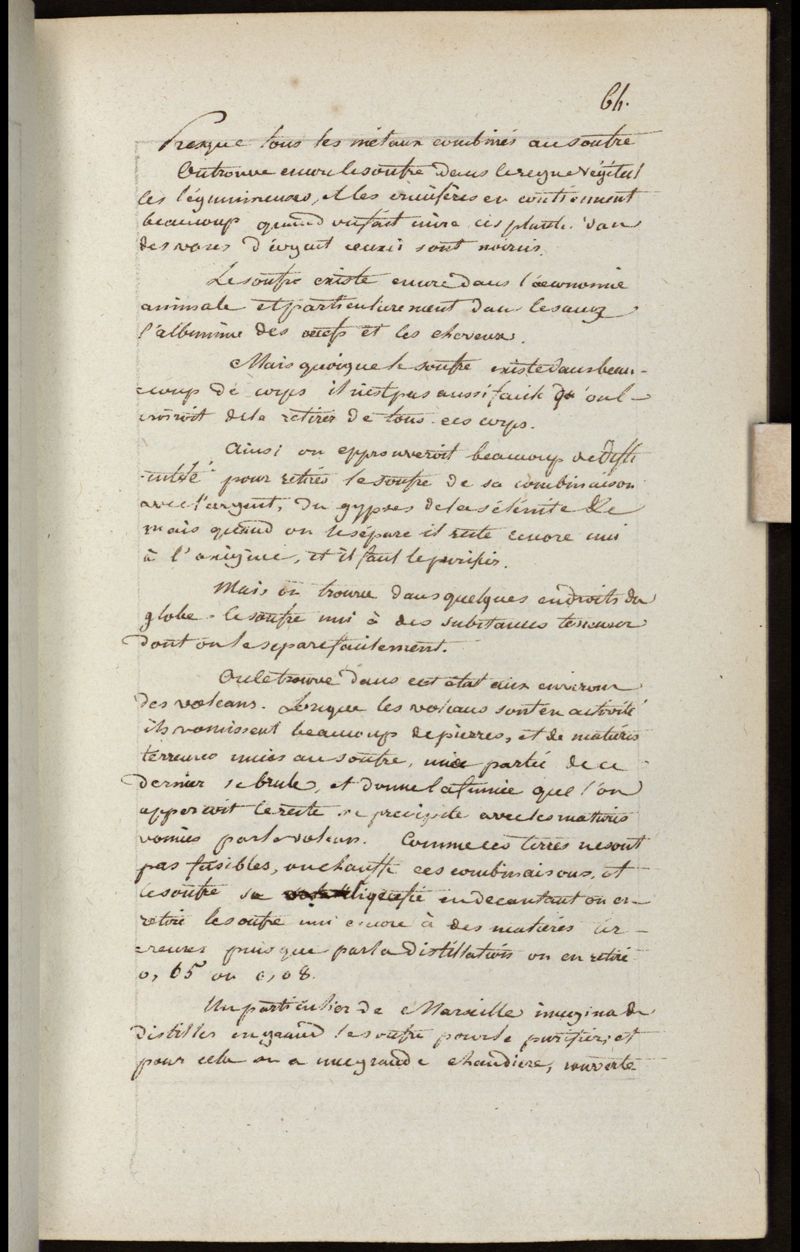 64.
Presque tous les métaux combinés au soufre
On trouve encore le soufre dans le regne végétal
les légumineuses, et les crucifères en contiennent
beaucoup quand on fait cuire ces plante dan
des vases d'argent ceuxci sont noircis.
Le soufre existe encore dans l'œconomie
animale et particulierement dan le sang
l'albumine des œufs et les cheveux.
Mais quoique le soufre existe dans beau-
-coup de corps il n'est pas aussi facile qu'on l
de le retirer de tous ces corps.
Ainsi on epprouveroit beaucoup de diffi
-culté pour retirer le soufre de sa combinaison
avec l'argent, du gypses de la sélénite &c
mais quand on le sépare il reste encore uni
à l'oxigène, et il faut le purifier.
Mais on trouve dans quelques endroits du
globe le soufre uni à des substances terreuses
dont on le separe facilement.
On le trouve dans cet état aux environs
des volcans. Lorsque les volcans sont en activité
ils vomissent beaucoup de pierres, et de matières
terreuses unies au soufre, une partie de ce
dernier se brule, et donne la fumée que l'on
apperçoit le reste se precipite avec les matières
vomies par le volcan. Comme ces terres ne sont
pas fusibles, on chauffe ces combinaisons, et
le soufre se liquefie en decantant on en
retire le soufre uni encore à des matières ter-
-reuses puisque par la distillation on en retire
0,65 ou 0,08.
Un particulier de Marseille imagina de
distiller en grand le soufre pour le purifier, et
pour cela on a une grande chaudiere, couverte